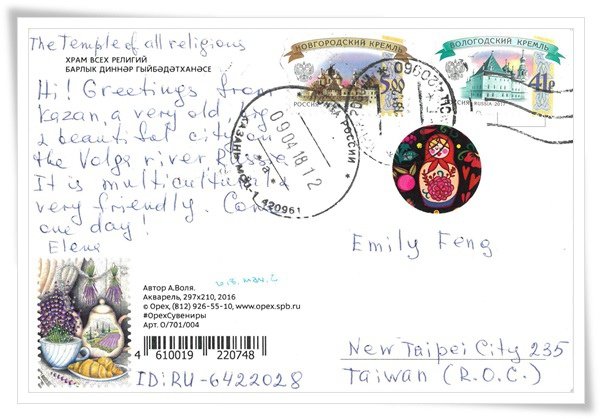 The Temple of all religious
ХРАМ ВСЕХ РЕЛИГИЙ
БАРЛЫК ДИННӘР ГЫЙБӘДӘТХАНӘСЕ
Hi! Greetings from
Kazan, a very old, big
& beautiful city on
the Volga river, Russia.
It is multicultural &
very friendly. Come
one day!
Elena
НОВГОРОДСКИЙ КРЕМЛЬ
5.00
РОССИЯ
ВОЛОГОДСКИЙ КРЕМЛЬ
41р
РОССИЯ RUSSIA 2017
ПОЧТА РОССИИ
КАЗАНЬ
420961
09 04 18 12
Emily Feng
Автор А.Воля.
Акварель, 297х210, 2016
© Орех, (812) 926-55-10, www.opex.spb.ru
#ОрехСувениры
Арт. О/701/004
4 610019 220748
ID: RU-6422028
New Taipei City 235
Taiwan (R.O.C.)